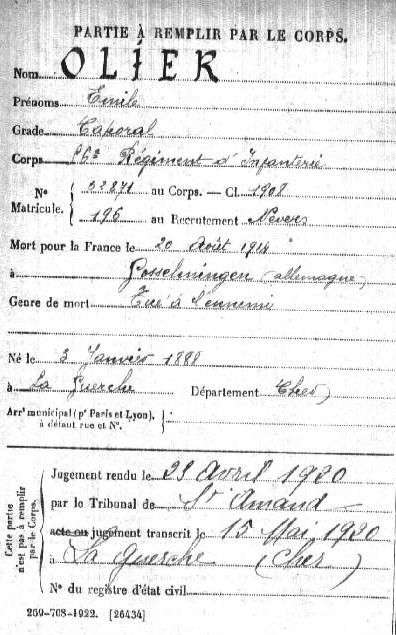 PARTIE À REMPLIR PAR LE CORPS.
Nom OLIER
Prénoms Emile
Grade Caporal
Corps Régiment d'Infanterie
Nº au Corps. — Cl. 1908
Matricule. 195 au Recrutement Nevers
Mort pour la France le 20 Août 1914
à Gosselmingen (allemagne)
Genre de mort Tué à l'ennemi
Né le 3 Janvier 1888
à La Guerche Département Cher
Arrt municipal (pr Paris et Lyon),
à défaut rue et Nº.
Cette partie
n'est pas à remplir
par le Corps.
Jugement rendu le 28 Avril 1920
par le Tribunal de St Amand
acte ou jugement transcrit le 15 Mai 1920
à La Guerche (Cher)
Nº du registre d'état civil
259-708-1922. [26434]